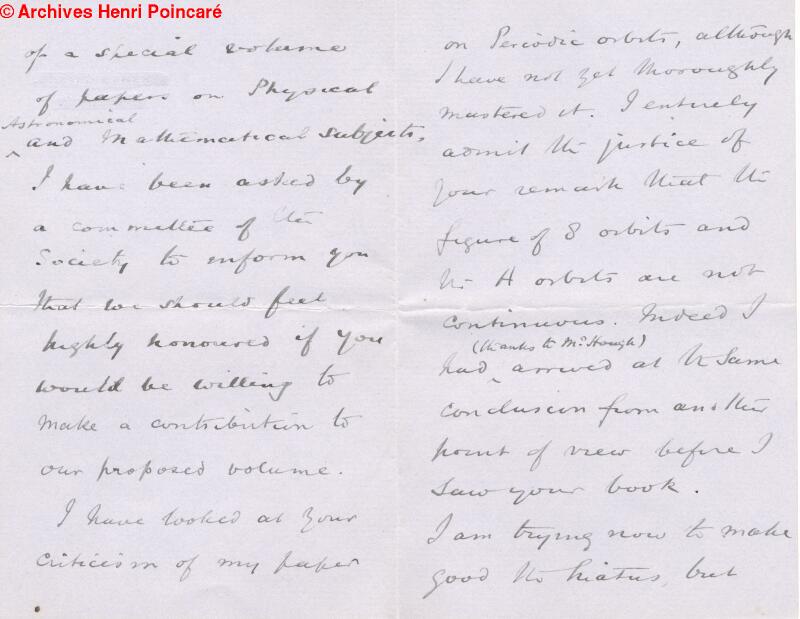 © Archives Henri Poincaré
of a special volume
of papers on Physical
Astronomical
^ and Mathematical subjects,
I have been asked by
a committee of the
Society to inform you
that we should feel
highly honoured if you
would be willing to
make a contribution to
our proposed volume.
I have looked at your
criticism of my paper
on Periodic orbits, although
I have not yet thoroughly
mastered it. I entirely
admit the justice of
your remark that the
figure of 8 orbits and
the A orbits are not
continuous. Indeed I
(thanks to Mr Hough)
had ^ arrived at the same
conclusion from another
point of view before I
saw your book.
I am trying now to make
good the hiatus, but